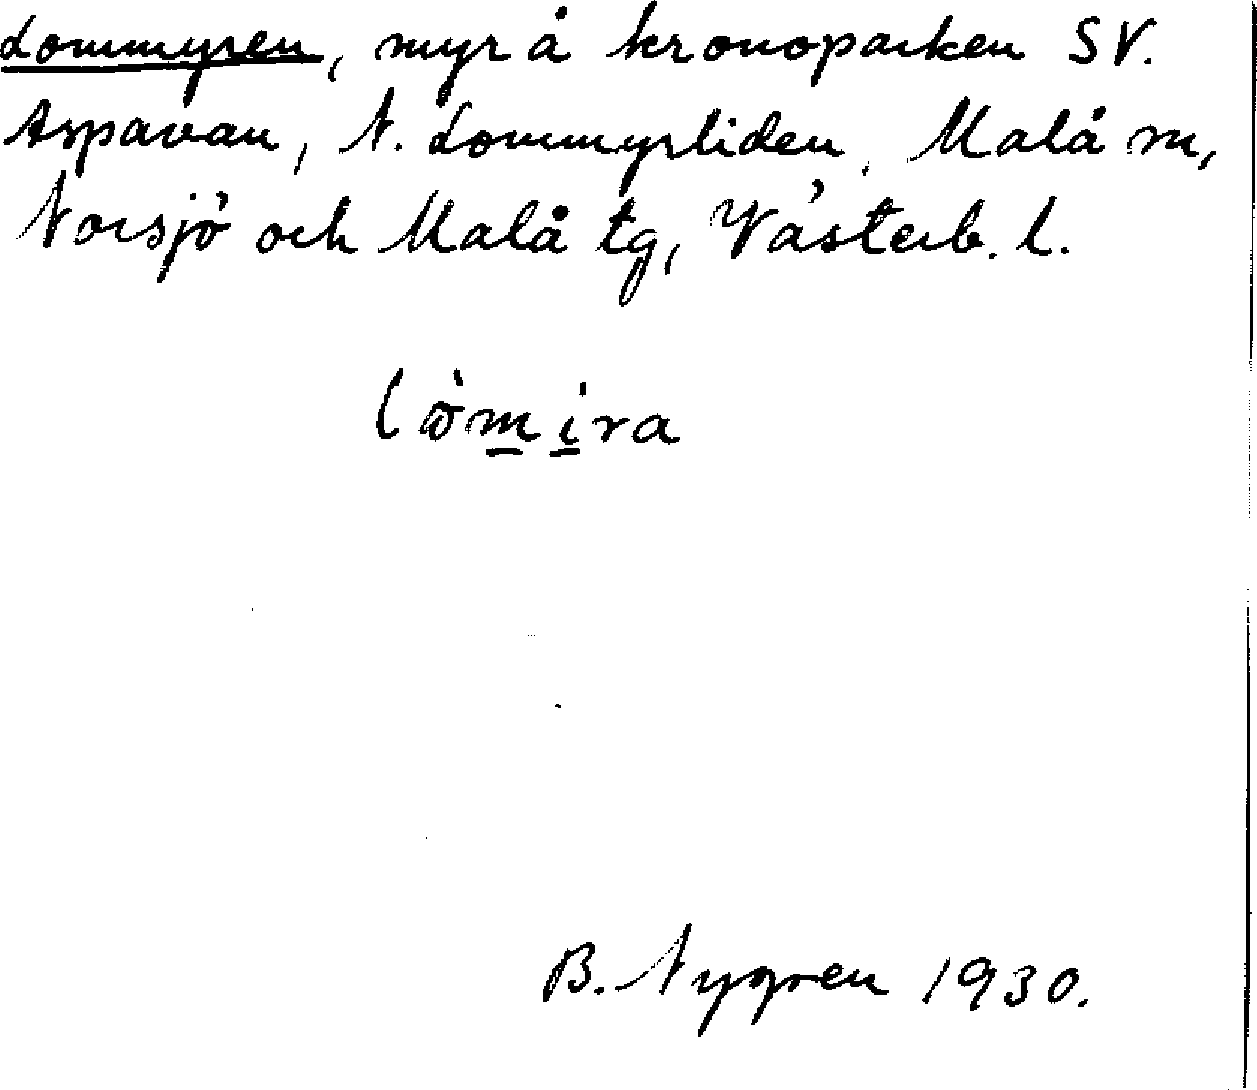 Lommyren, myr å kronoparken SV.
Aspavan, N. Lommyrliden, Malå sn,
Norsjö och Malå tg, Västerb. l.
lòmira
B. Nygren 1930.